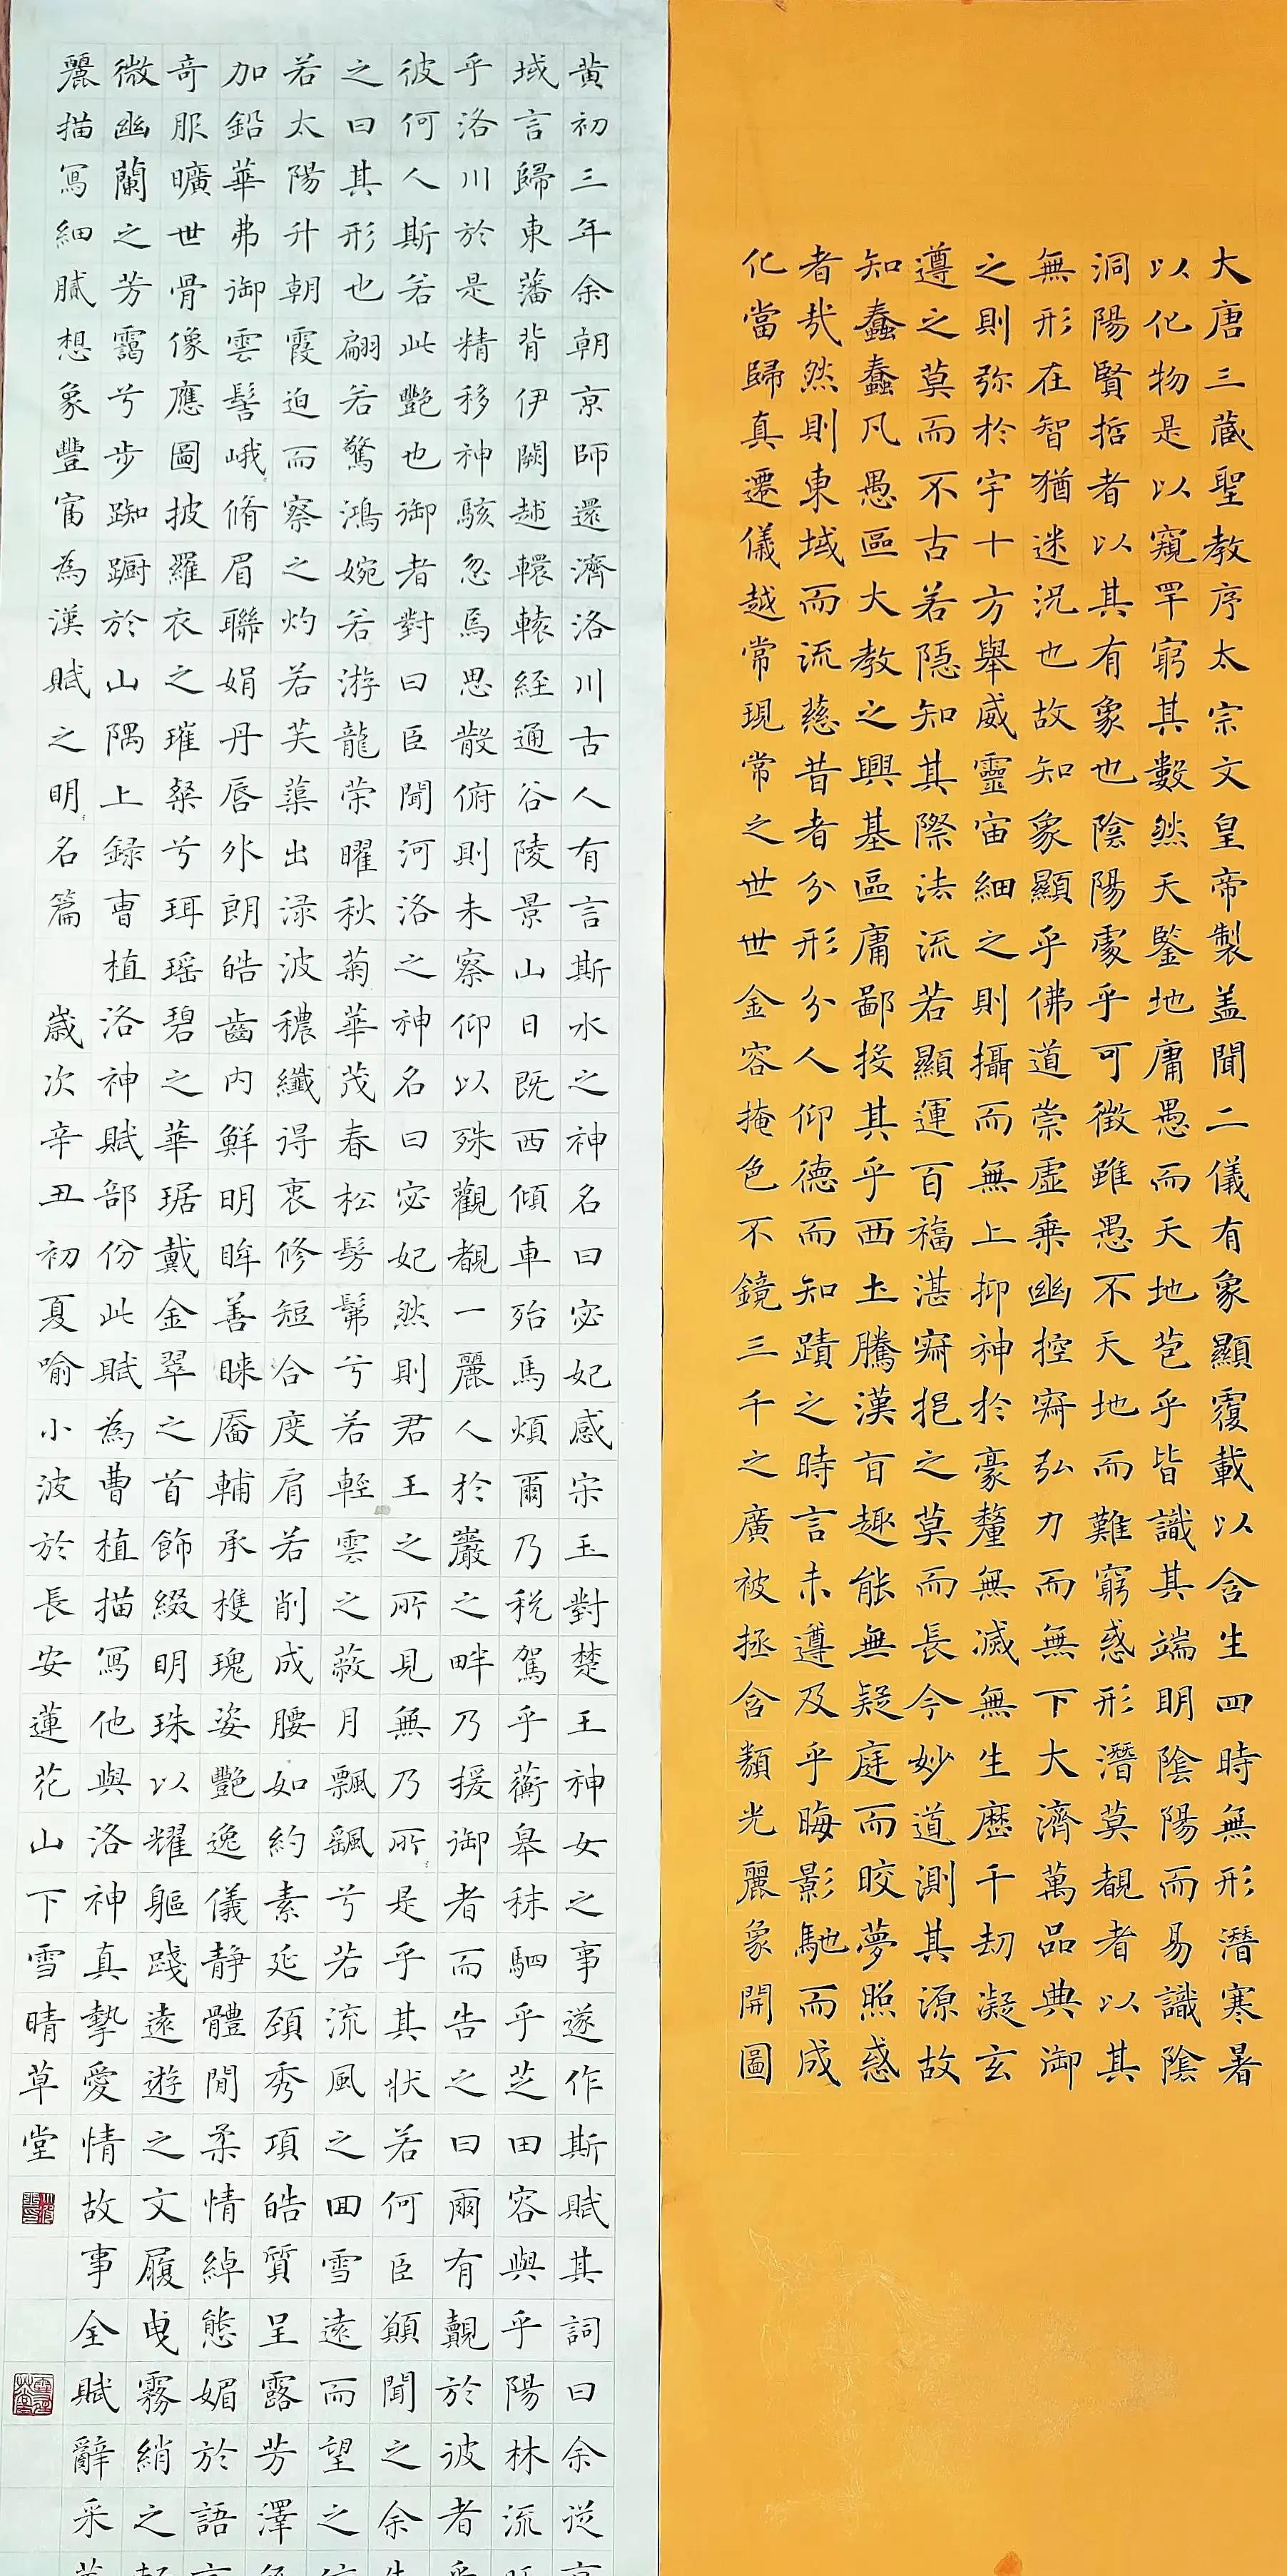 大唐三藏聖教序太宗文皇帝製盖聞二儀有象顯覆載以含生四時無形潛寒暑
以化物是以窺罕窮其數然天鍳地庸愚而天地苞乎皆識其端明陰陽而易識陰
洞陽賢哲者以其有象也陰陽處乎可徵雖愚不天地而難窮惑形潛莫覩者以其
無形在智猶迷況也故知象顯乎佛道崇虛乗幽控寂弘力而無下大濟萬品典御
之則弥於宇十方舉威靈宙細之則攝而無上抑神於豪釐無滅無生歷千劫凝玄
遵之莫而不古若隱知其際法流若顯運百福湛寂挹之莫而長今妙道測其源故
知蠢蠢凡愚區大教之興基區庸鄙投其乎西土騰漢旨趣能無疑庭而皎夢照惑
者哉然則東域而流慈昔者分形分人仰德而知蹟之時言未遵及乎晦影馳而成
化當歸真遷儀越常現常之世世金容掩色不鏡三千之廣被拯含類光麗象開圖
黃初三年余朝京師還濟洛川古人有言斯水之神名曰宓妃感宋玉對楚王神女之事遂作斯賦其詞曰余從
域言歸東藩背伊闕越轘轅經通谷陵景山日既西傾車殆馬煩爾乃稅駕乎蘅皋秣駟乎芝田容與乎陽林流
乎洛川於是精移神駭忽焉思散俯則未察仰以殊觀覩一麗人於巖之畔乃援御者而告之曰爾有覿於彼者
彼何人斯若此艷也御者對曰臣聞河洛之神名曰宓妃然則君王之所見無乃所是乎其狀若何臣願聞之余
之曰其形也翩若驚鴻婉若游龍榮曜秋菊華茂春松髣髴兮若輕雲之蔽月飄颻兮若流風之回雪遠而望之
若太陽升朝霞迫而察之灼若芙蕖出淥波穠纖得衷修短合度肩若削成腰如約素延頸秀項皓質呈露芳澤
加鉛華弗御雲髻峨脩眉聯娟丹唇外朗皓齒內鮮明眸善睞靨輔承權瑰姿艷逸儀靜體閒柔情綽態媚於語
奇服曠世骨像應圖披羅衣之璀粲兮珥瑤碧之華琚戴金翠之首飾綴明珠以耀軀踐遠遊之文履曳霧綃之
微幽蘭之芳靄兮步踟躕於山隅上録曹植洛神賦部份此賦為曹植描寫他與洛神真摯愛情故事全賦辭采
麗描寫細膩想象豐富為漢賦之明名篇 歲次辛丑初夏喻小波於長安蓮花山下雪晴草堂